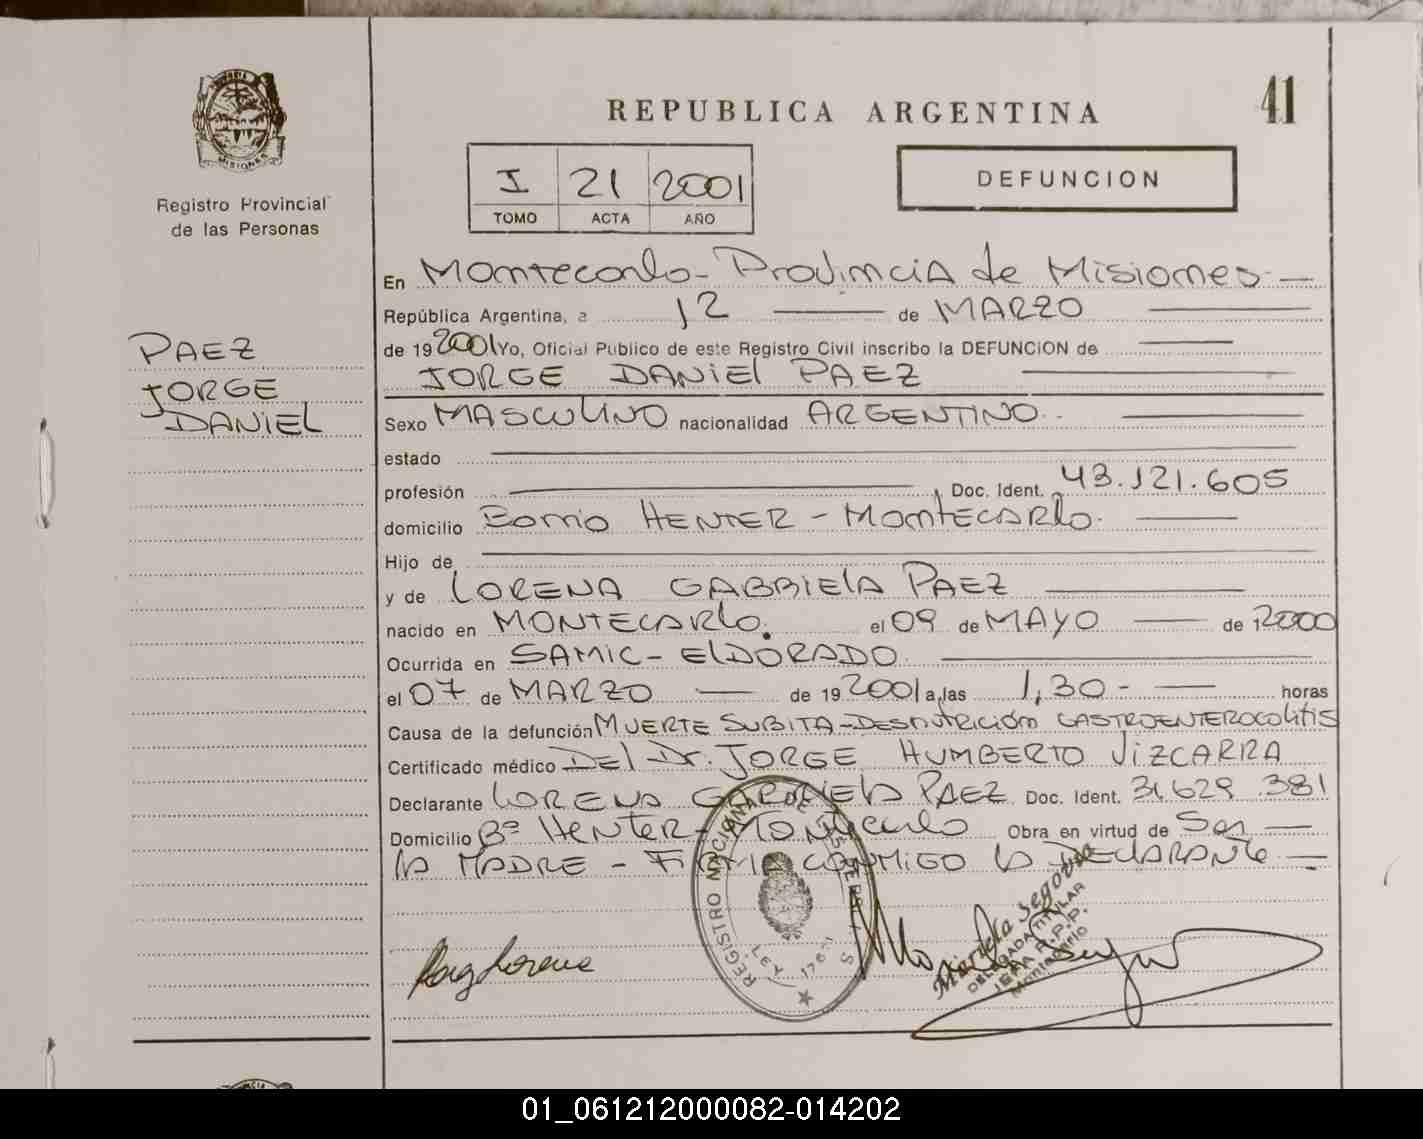 41
REPUBLICA ARGENTINA
MISIONES
Registro Provincial
de las Personas
I 21 2001
TOMO ACTA AÑO
DEFUNCION
PAEZ
JORGE
DANIEL
En Montecarlo - Provincia de Misiones
República Argentina, a 12 de MARZO
de 19 2001 Yo, Oficial Público de este Registro Civil inscribo la DEFUNCION de
JORGE DANIEL PAEZ
Sexo MASCULINO nacionalidad ARGENTINO
estado
profesión Doc. Ident. 43.121.605
domicilio Barrio HENTER - MONTECARLO.
Hijo de
y de LORENA GABRIELA PAEZ
nacido en MONTECARLO. el 09 de MAYO de 12000
Ocurrida en SAMIC - ELDORADO
el 07 de MARZO de 19 2001 a las 1,30 - horas
Causa de la defunción MUERTE SUBITA - DESNUTRICIÓN GASTROENTEROCOLITIS
Certificado médico DEL Dr. JORGE HUMBERTO VIZCARRA
Declarante LORENA GABRIELA PAEZ Doc. Ident. 31.629.381
Domicilio Bº HENTER - Montecarlo Obra en virtud de Ser
LA MADRE - FIRMA CONMIGO LA DECLARANTE
REGISTRO NACIONAL DE LAS PERSONAS
LEY 17671
Lorena
Mariela Segovia
DELEGADA TITULAR
R.P.P.
Montecarlo
01_061212000082-014202